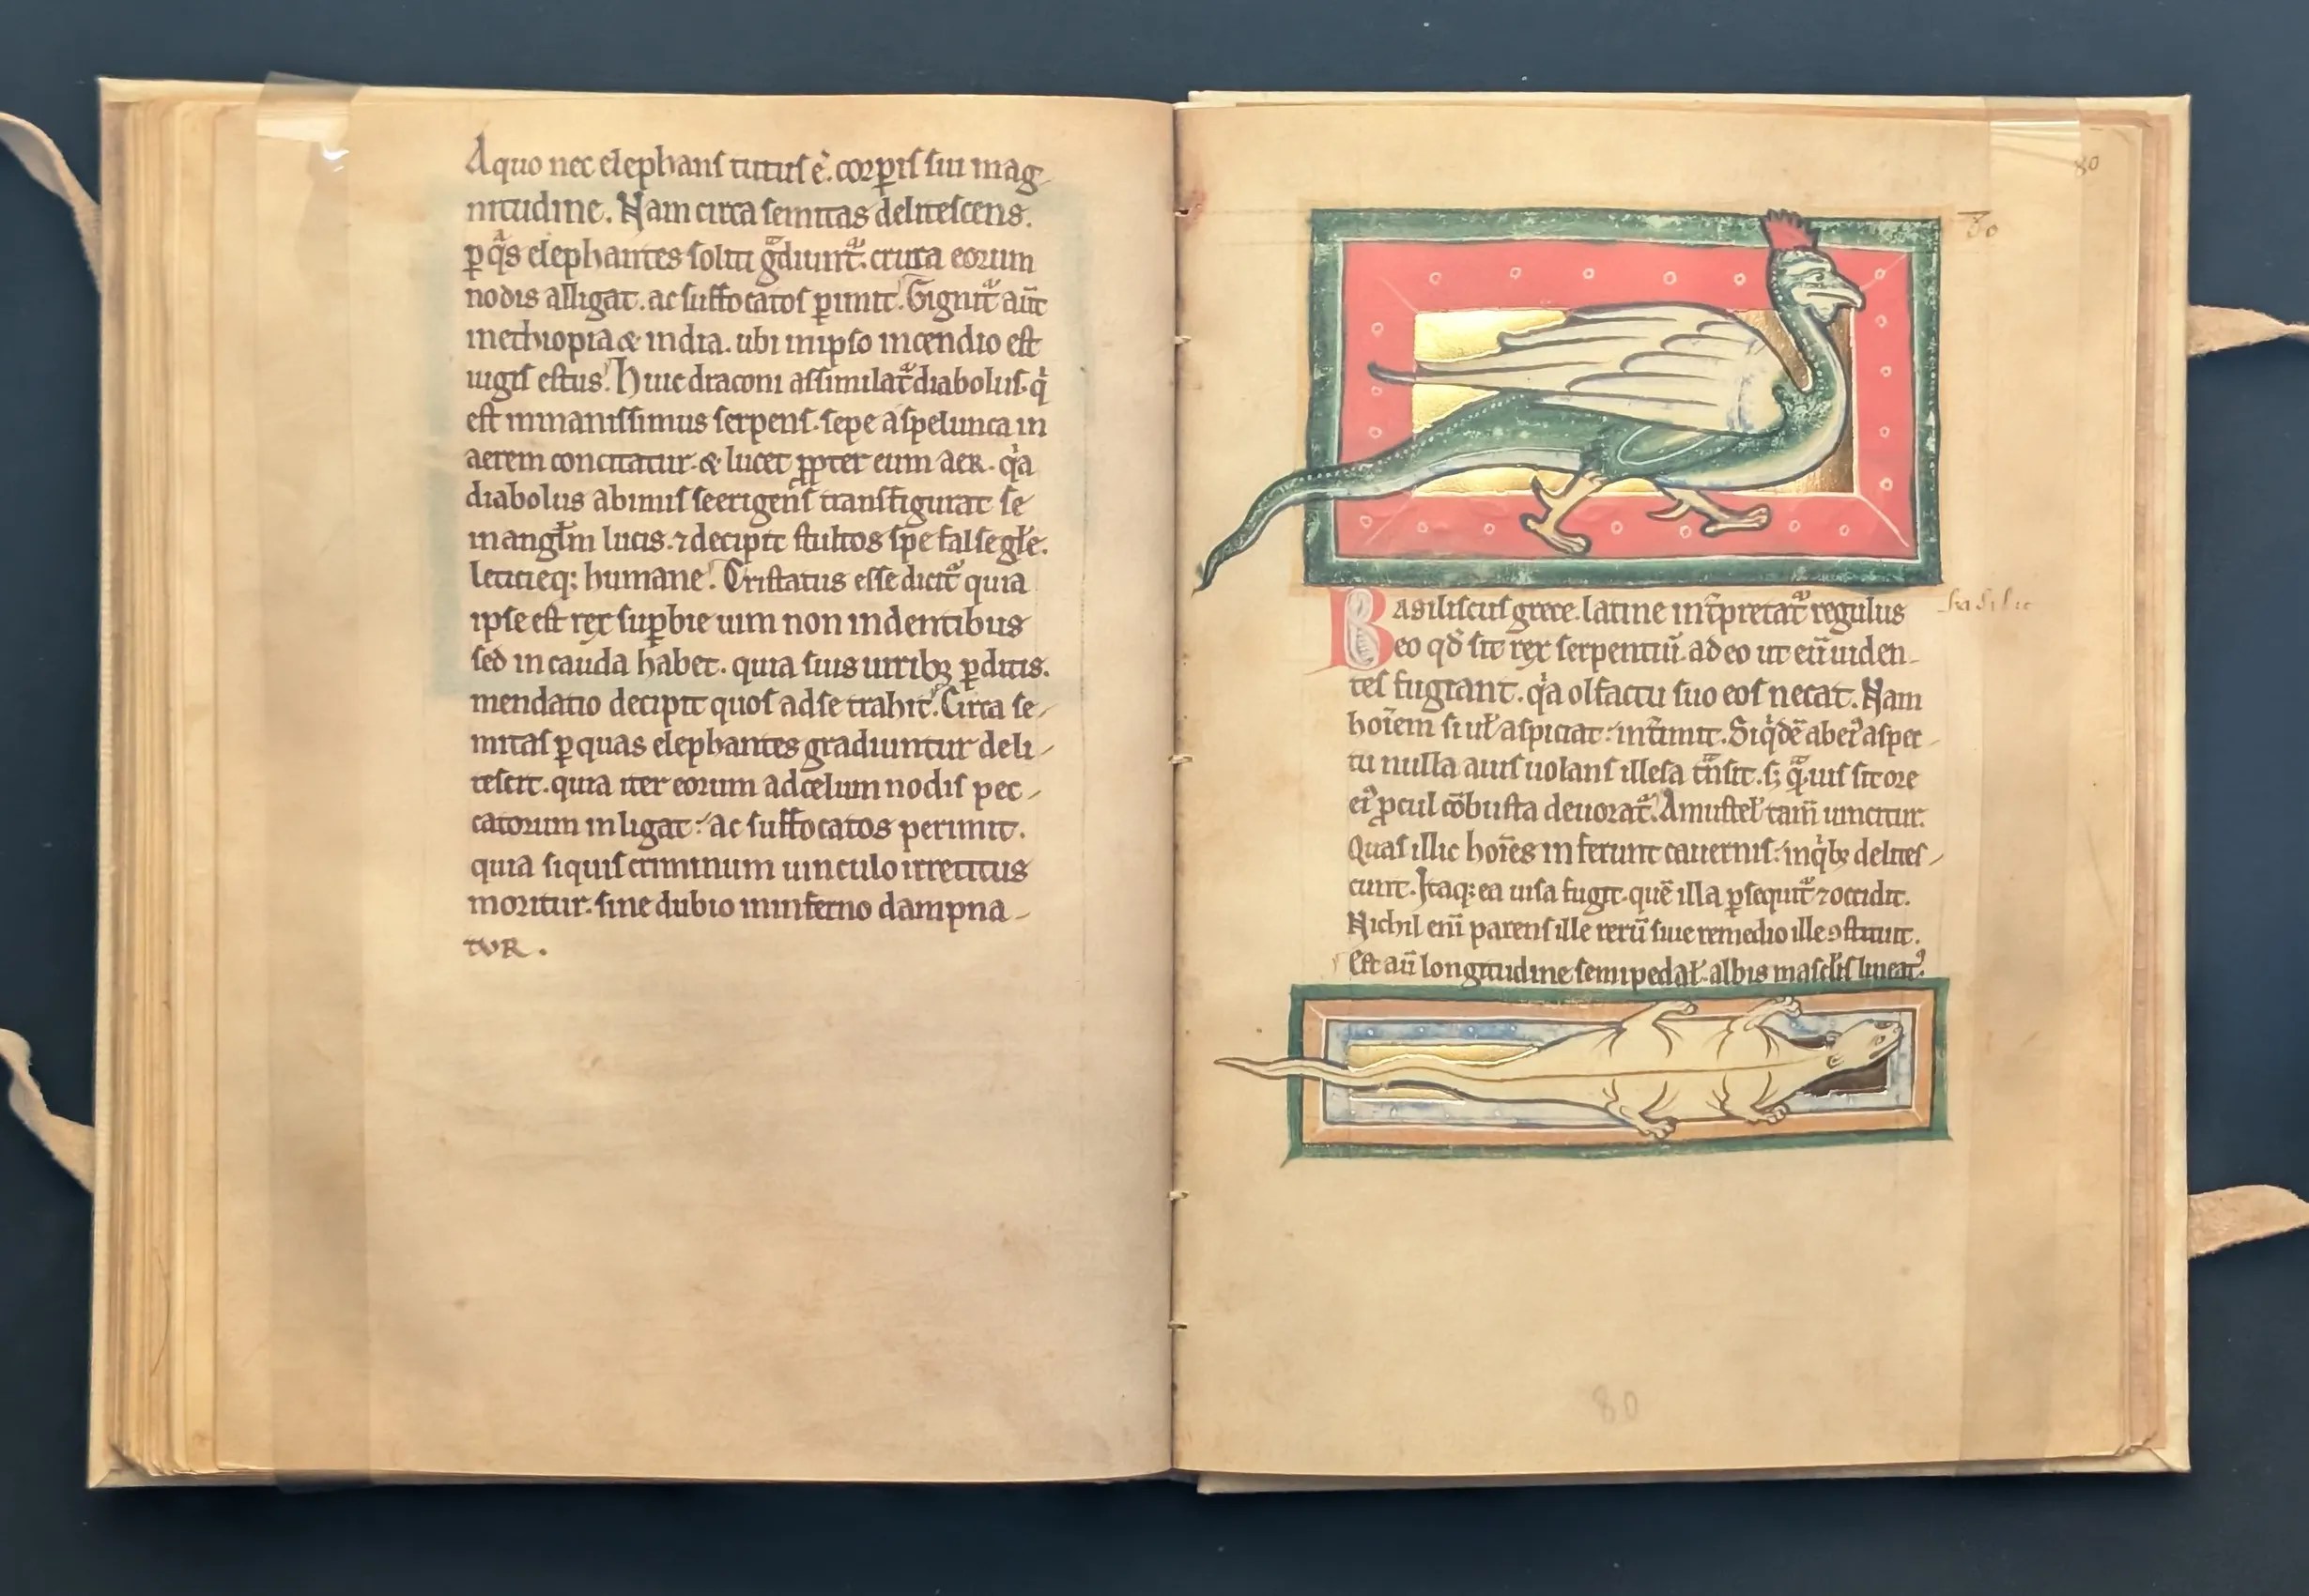 Aquo nec elephanſ tutuſ ē. corꝑiſ ſui mag
nitudine. Nam circa ſemitas deliteſcens.
ꝑ qᵃs elephantes ſoliti gᵃdiunt᷑. crura eorum
nodis alligat. ac ſuffocatoſ ꝑimit. Gignit᷑ aūt
inethiopia & india. ubi inipſo incendio eſt
iugiſ eſtus. Huic draconi aſſimilat᷑ diaboluſ. qͥ
eſt inmaniſſimus ſerpenſ. ſepe aſpelunca in
aerem concitatur. & lucet ꝓpter eum aer. qͥa
diabolus abimiſ ſeerigenſ tranſfigurat ſe
inangl̄m lucis. ⁊ decipit ſtultos ſpe falſe gl̄e.
leticieq; humane. Criſtatus eſſe dicit᷑ quia
ipſe eſt rex ſuꝑbie uim non indentibus
ſed incauda habet. quia ſuis uiribꝫ ꝑditis.
mendatio decipit quoſ adſe trahit. Circa ſe
mitaſ ꝑ quas elephantes gradiuntur deli
teſcit. quia iter eorum adcelum nodiſ pec
catorum inligat. ac ſuffocatos perimit.
quia ſiquiſ criminum uinculo irretitus
moritur. ſine dubio ininferno dampna
tuR.
80
80
Baſiliſcuſ grece. latine int̄pretat᷑ regulus
eo qđ ſit rex ſerpentiū. adeo ut eū uiden
teſ fugiant. qͥa olfactu ſuo eoſ necat. Nam
hoīem ſi ul̓ aſpiciat. int̄imit. Siqͥdē abei᷒ aſpec
tu nulla auiſ uolanſ illeſa tᵃnſit. ſꝫ qᵃ̄uiſ ſit ore
ei᷒ ꝓcul cōbuſta deuorat᷑. Amuſtel̓ tam̄ uincitur.
Quaſ illic hoīes inferunt cauerniſ. inqͥbꝫ deliteſ
cunt. Itaq; ea uiſa fugit. quē illa ꝑſequit᷑ ⁊ occidit.
Nichil eni᷒ parenſ ille rerū ſine remedio ille ꝯſtituit.
Eſt aū longitudine ſemipedal̓. albis macl̓iſ lineat᷒.
baſilic
80